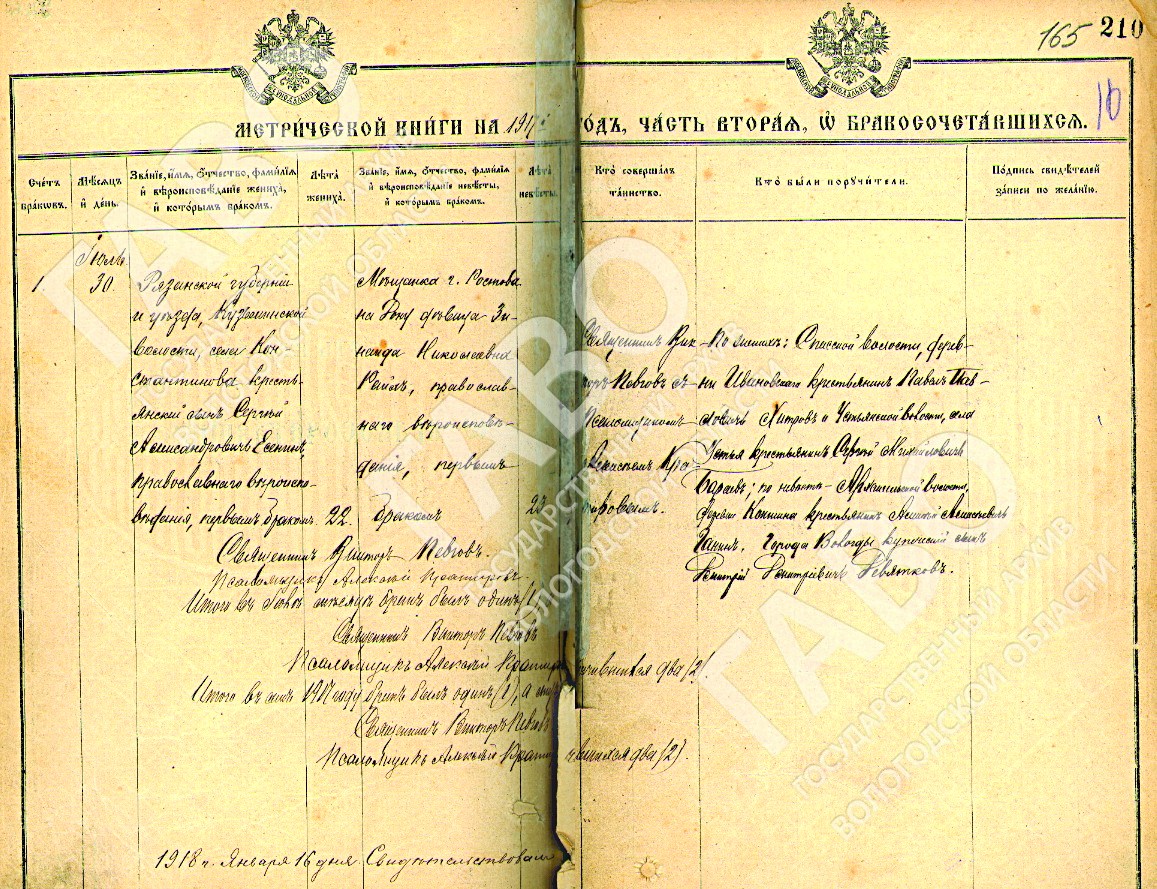 165 210
10
МЕТРИ́ЧЕСКОЙ КНИ́ГИ НА 1917 ГО́ДЪ, ЧА́СТЬ ВТОРА́Я, Ѡ҆ БРАКОСОЧЕТА́ВШИХСЯ.
Сче́тъ бра́кѡвъ.
Мѣ́сяцъ и҆ де́нь.
Зва́нїе, и҆́мѧ, ѻ҆́тчество, фами́лїѧ
и҆ вѣ̀роисповѣ́данїе жениха̀,
и҆ кото́рымъ бра́комъ.
Лѣ́та жениха̀.
Зва́нїе, и҆́мѧ, ѻ҆́тчество, фами́лїѧ
и҆ вѣ̀роисповѣ́данїе невѣ́сты,
и҆ кото́рымъ бра́комъ.
Лѣ́та невѣ́сты.
Кто̀ соверша́лъ
та́инство.
Кто̀ бы́ли поручи́тели.
По́дпись свидѣ́телей
за́писи по жела́нїю.
1.
Іюль
30.
Рязанской губерніи
и уѣзда, Кузьминской
волости, села Кон-
стантинова кресть-
янскій сынъ Сергѣй
Александровичъ Есенинъ,
православнаго вѣроиспо-
вѣданія, первымъ бракомъ.
22.
Мѣщанка г. Ростова
на Дону дѣвица Зи-
наида Николаевна
Райхъ, православ-
наго вѣроисповѣ-
данія, первымъ
бракомъ
23
Священникъ Вик-
торъ Пѣвговъ съ
псаломщикомъ
Алексѣемъ Кра-
тировымъ.
По женихѣ: Спасской волости, дерев-
ни Ивановской крестьянинъ Павелъ Пав-
ловичъ Хитровъ и Устьянской волости, села
Устья крестьянинъ Сергѣй Михайловичъ
Бараевъ; по невѣстѣ – Архангельской волости,
деревни Коншина крестьянинъ Алексѣй Алексѣевичъ
Ганинъ. Города Вологды купеческій сынъ
Дмитрій Дмитріевичъ Девятковъ.
Священникъ Викторъ Пѣвговъ.
Псаломщикъ Алексѣй Кратировъ.
Итого въ Іюлѣ мѣсяцѣ бракъ былъ одинъ (1
чившихся два (2).
Священникъ Викторъ Пѣвговъ
Псаломщикъ Алексѣй Кратиро
Итого въ семъ 1917 году бракъ былъ одинъ (1), а
чившихся два (2).
Священникъ Викторъ Пѣвгов
Псаломщикъ Алексѣй Кратир
1918 г. Января 16 дня Свидѣтельствовали
ГАВО
ГОСУДАРСТВЕННЫЙ АРХИВ
ВОЛОГОДСКОЙ ОБЛАСТИ